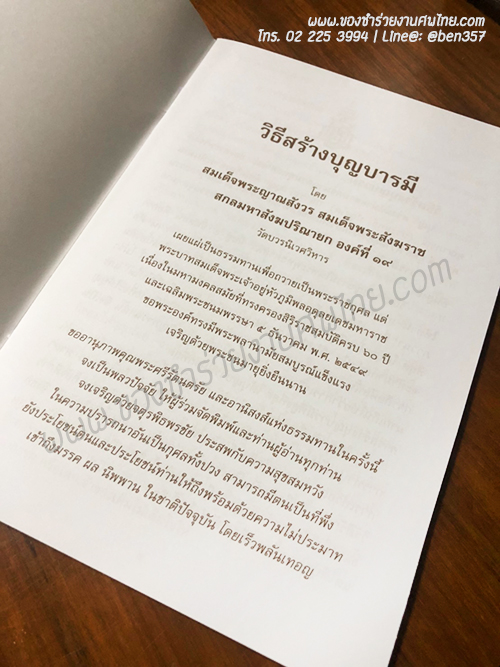 www.ของชำร่วยงานศพไทย.com
โทร. 02 225 3994 | Line@: @ben357
วิธีสร้างบุญบารมี
โดย
สมเด็จพระญาณสังวร สมเด็จพระสังฆราช
สกลมหาสังฆปริณายก องค์ที่ ๑๙
วัดบวรนิเวศวิหาร
เผยแผ่เป็นธรรมทานเพื่อถวายเป็นพระราชกุศล แด่
พระบาทสมเด็จพระเจ้าอยู่หัวภูมิพลอดุลยเดชมหาราช
เนื่องในมหามงคลสมัยที่ทรงครองสิริราชสมบัติครบ ๖๐ ปี
และเฉลิมพระชนมพรรษา ๕ ธันวาคม พ.ศ. ๒๕๔๙
ขอพระองค์ทรงมีพระพลานามัยสมบูรณ์แข็งแรง
เจริญด้วยพระชนมายุยิ่งยืนนาน
ขออานุภาพคุณพระศรีรัตนตรัย และอานิสงส์แห่งธรรมทานในครั้งนี้
จงเป็นพลวปัจจัย ให้ผู้ร่วมจัดพิมพ์และท่านผู้อ่านทุกท่าน
จงเจริญด้วยจตุรพิธพรชัย ประสพกับความสุขสมหวัง
ในความปรารถนาอันเป็นกุศลทั้งปวง สามารถมีตนเป็นที่พึ่ง
ยังประโยชน์ตนและประโยชน์ท่านให้ถึงพร้อมด้วยความไม่ประมาท
เข้าถึงมรรค ผล นิพพาน ในชาติปัจจุบัน โดยเร็วพลันเทอญ
www.ของชำร่วยงานศพไทย.com